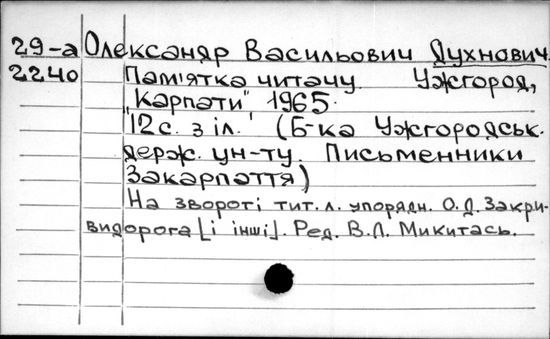 29-а Олександр Васильович Духнович.
2240 Пам'ятка читачу. Ужгород,
"Карпати" 1965.
12 с. з іл. (Б-ка Ужгородськ.
держ. ун-ту. Письменники
Закарпаття)
На звороті тит. л. упорядн. О.Д. Закри-
видорога [і інші]. Ред. В.Л. Микитась.